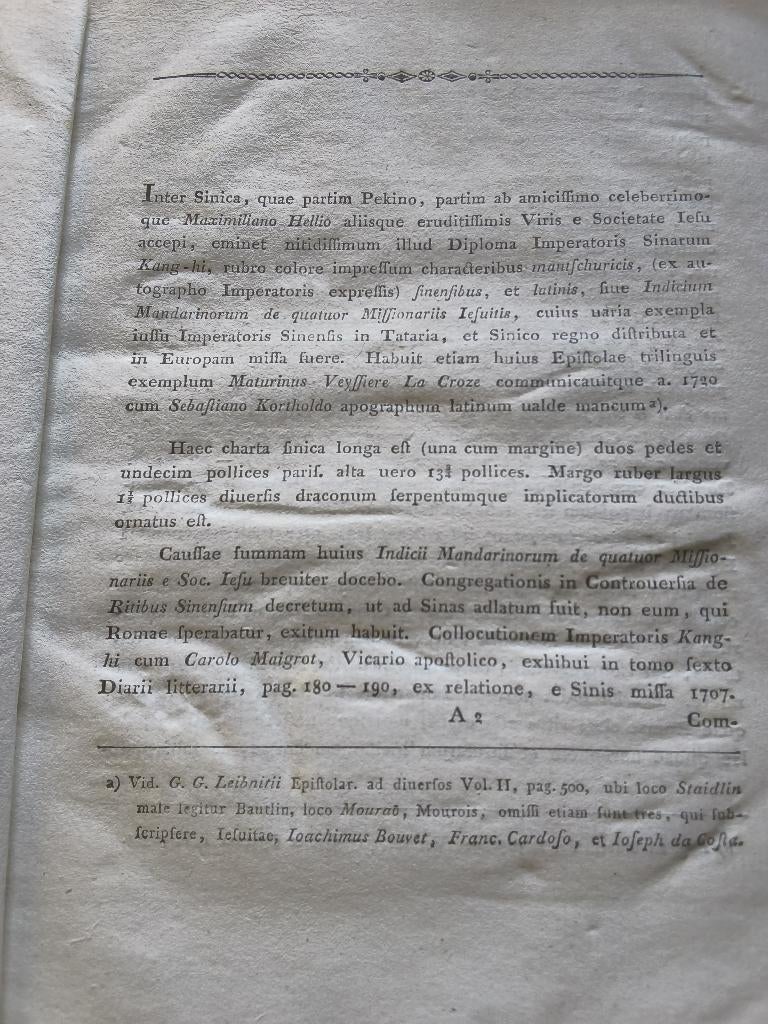 Inter Sinica, quae partim Pekino, partim ab amiciſſimo celeberrimo-
que Maximiliano Hellio aliisque eruditiſſimis Viris e Societate Ieſu
accepi, eminet nitidiſſimum illud Diploma Imperatoris Sinarum
Kang-hi, rubro colore impreſſum characteribus mantſchuricis, (ex au-
tographo Imperatoris expreſſis) ſinenſibus, et latinis, ſiue Indicium
Mandarinorum de quatuor Miſſionariis Ieſuitis, cuius uaria exempla
iuſſu Imperatoris Sinenſis in Tataria, et Sinico regno diſtributa et
in Europam miſſa fuere. Habuit etiam huius Epiſtolae trilinguis
exemplum Maturinus Veyſſiere La Croze communicauitque a. 1720
cum Sebaſtiano Kortholdo apographum latinum ualde mancum a).
Haec charta ſinica longa eſt (una cum margine) duos pedes et
undecim pollices pariſ. alta uero 13¾ pollices. Margo ruber largus
1½ pollices diuerſis draconum ſerpentumque implicatorum ductibus
ornatus eſt.
Cauſſae ſummam huius Indicii Mandarinorum de quatuor Miſſio-
nariis e Soc. Ieſu breuiter docebo. Congregationis in Controuerſia de
Ritibus Sinenſium decretum, ut ad Sinas adlatum fuit, non eum, qui
Romae ſperabatur, exitum habuit. Collocutionem Imperatoris Kang-
hi cum Carolo Maigrot, Vicario apoſtolico, exhibui in tomo ſexto
Diarii litterarii, pag. 180 — 190, ex relatione, e Sinis miſſa 1707.
A 2 Com-
a) Vid. G. G. Leibnitii Epiſtolar. ad diuerſos Vol. II, pag. 500, ubi loco Staidlin
male legitur Bautlin, loco Mouraõ, Mourois, omiſſi etiam ſunt tres, qui ſub-
ſcripſere, Ieſuitae, Ioachimus Bouvet, Franc. Cardoſo, et Ioſeph da Coſta.